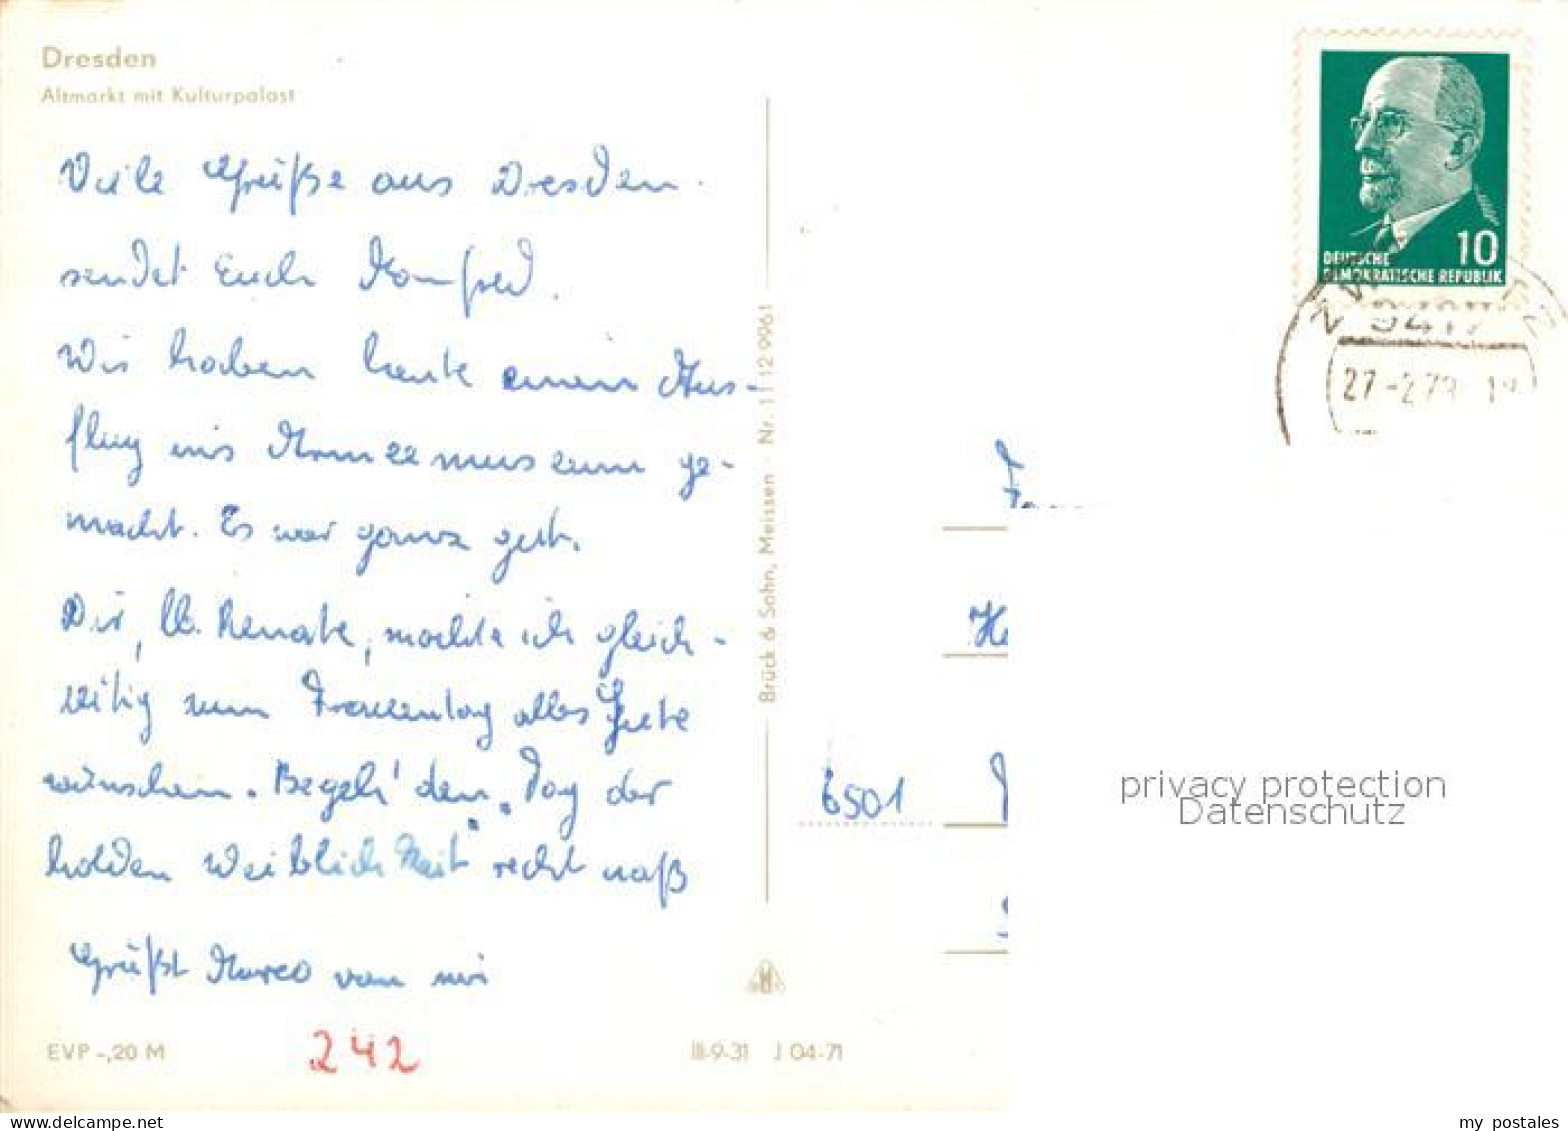 Dresden
Altmarkt mit Kulturpalast
Viele Grüße aus Dresden
sendet Euch Manfred.
Wir haben heute einen Aus-
flug ins Armeemuseum ge-
macht. Es war ganz gut.
Dir, lb. Renate, möchte ich gleich-
zeitig zum Frauentag alles Gute
wünschen. Begeh' den "Tag der
holden Weiblichkeit" recht naß
Grüßt Marco von mir
EVP -,20 M
242
III-9-31 J 04-71
Brück & Sohn, Meissen Nr. 1112 9961
10
DEUTSCHE
DEMOKRATISCHE REPUBLIK
27.-2.73
6501
privacy protection
Datenschutz
my postales